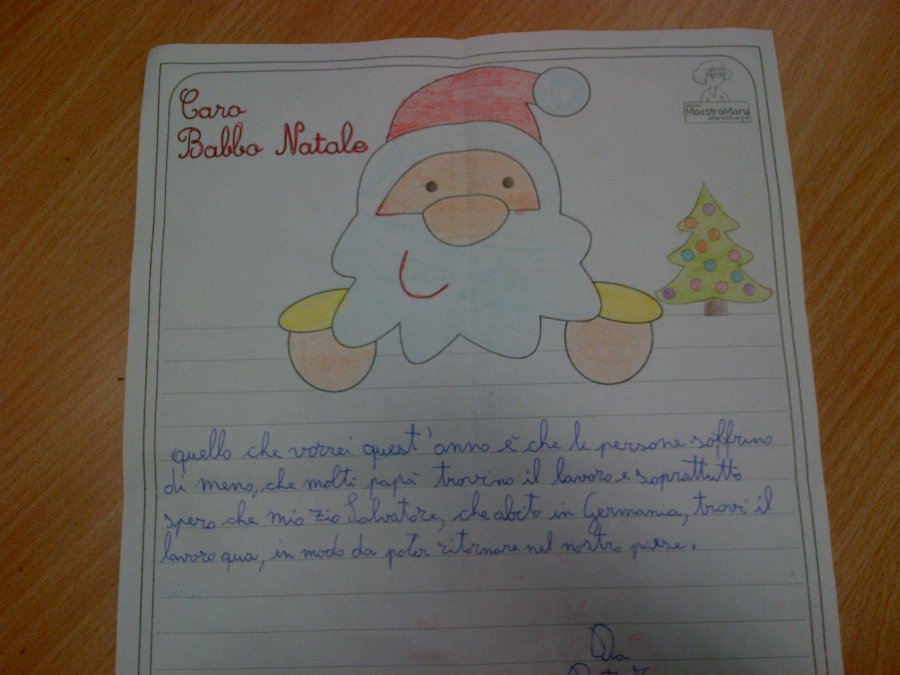 Caro
Babbo Natale
MaestraMary
quello che vorrei quest'anno è che le persone soffrino
di meno, che molti papà trovino il lavoro e soprattutto
spero che mio zio Salvatore, che abita in Germania, trovi il
lavoro qua, in modo da poter ritornare nel nostro paese.
Da